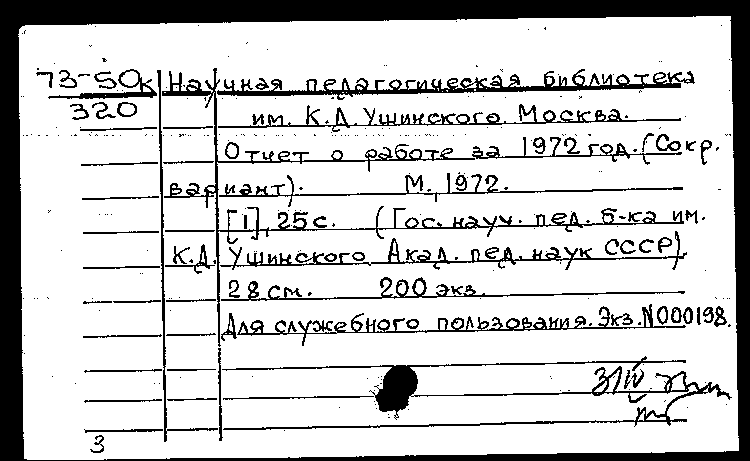 73-50к Научная педагогическая библиотека
320 им. К.Д. Ушинского. Москва.
Отчет о работе за 1972 год. (Сокр.
вариант). М., 1972.
[1], 25 с. (Гос. науч. пед. б-ка им.
К.Д. Ушинского Акад. пед. наук СССР)
28 см. 200 экз.
Для служебного пользования. Экз. N000198.
31/IV
3